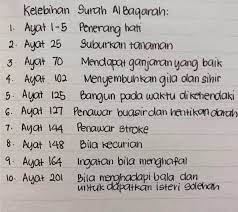 Kelebihan Surah Al Baqarah:
1. Ayat 1-5 Penerang hati
2. Ayat 25 Suburkan tanaman
3. Ayat 70 Mendapat ganjaran yang baik
4. Ayat 102 Menyembuhkan gila dan sihir
5. Ayat 125 Bangun pada waktu dikehendaki
6. Ayat 127 Penawar buasir dan hentikan darah
7. Ayat 144 Penawar stroke
8. Ayat 148 Bila kecurian
9. Ayat 164 Ingatan bila menghafal
10. Ayat 201 Bila menghadapi bala dan
untuk dapatkan isteri solehah